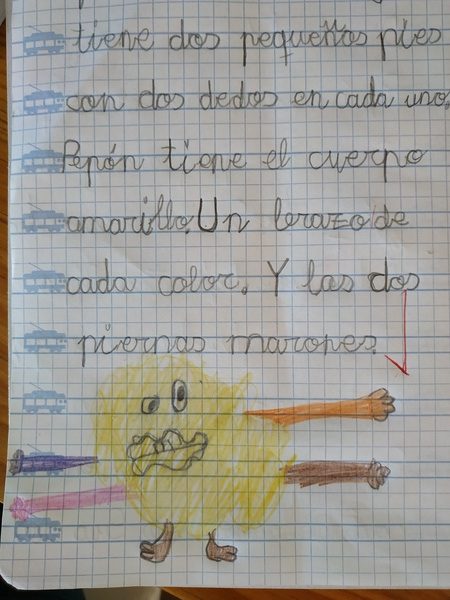 tiene dos pequeños pies
con dos dedos en cada uno.
Pepón tiene el cuerpo
amarillo. Un brazo de
cada color. Y las dos
piernas marones.